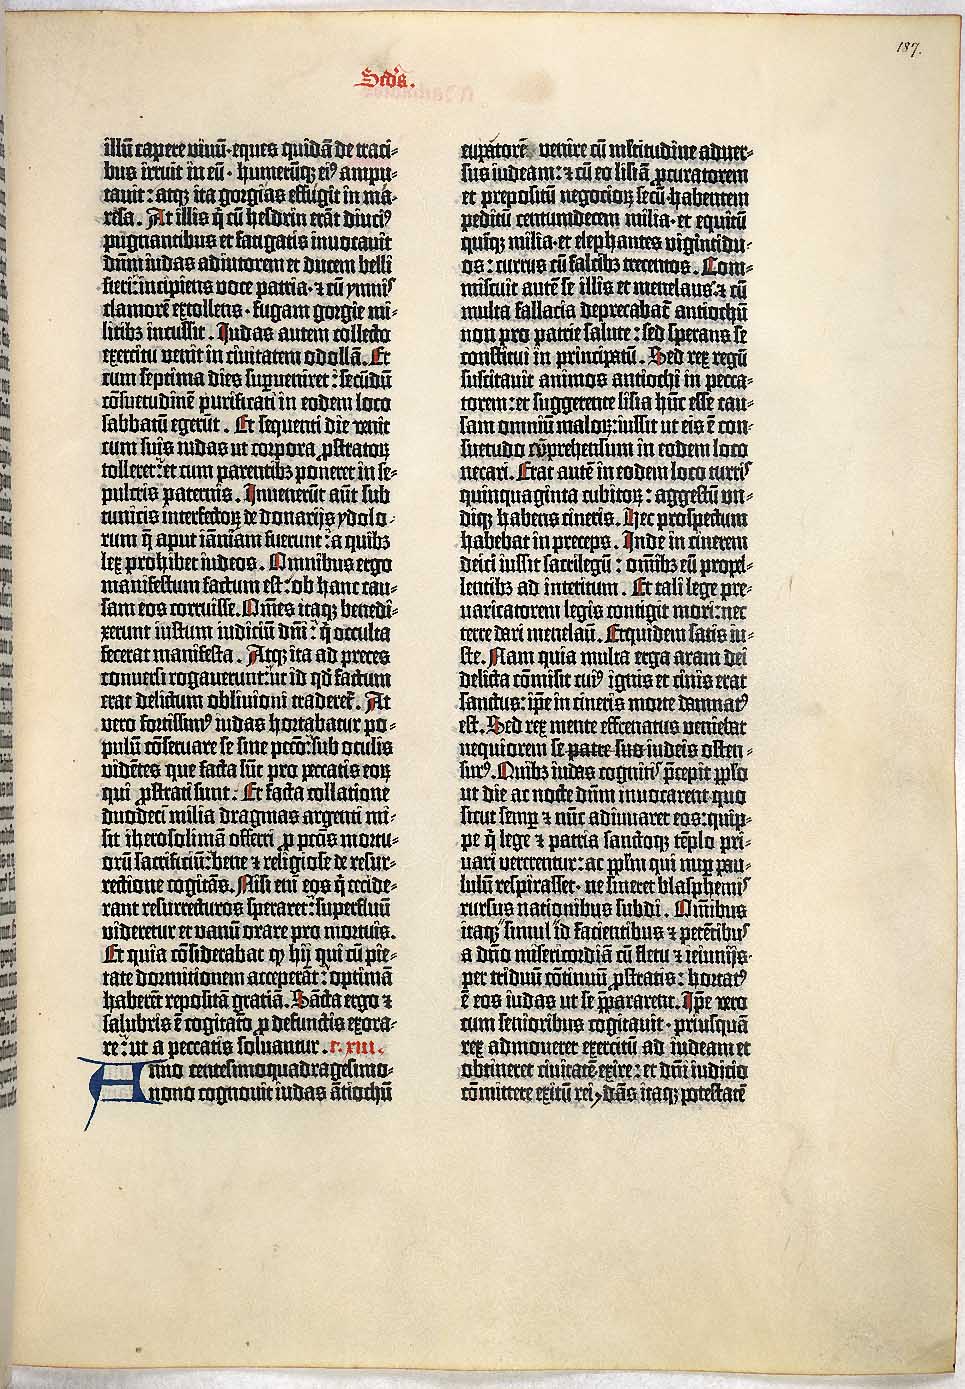 187.
Scd's.
illū capere vivū·eques quidā de traci-
bus irruit in eū·humerūq; ei⁹ ampu-
tavit: atq; ita gorgias effugit in ma-
resa. At illis q̄ cū hesdrin erāt diuci⁹
pugnantibus et fatigatis invocavit
dn̄m iudas adiutorem et ducem belli
fieri: incipiens voce patria·⁊ cū ymnis
clamorē extollens·fugam gorgie mi-
litib; incussit. Iudas autem collecto
exercitu venit in civitatem odollā. Et
cum septima dies superveniret: secūdū
cōsuetudinē purificati in eodem loco
sabbatū egerūt. Et sequenti die venit
cum suis iudas ut corpora p̄stratoꝝ
tolleret: et cum parentib; poneret in se-
pulcris paternis. Invenerūt aūt sub
tunicis interfectoꝝ de donarijs ydolo-
rum q̄ aput iāniam fuerunt: a quib;
lex prohibet iudeos. Omnibus ergo
manifestum factum est: ob hanc cau-
sam eos corruisse. Om̄es itaq; benedi-
xerunt iustum iudiciū dn̄i: q̄ occulta
fecerat manifesta. Atq; ita ad preces
conversi rogaverunt: ut id qd̄ factum
erat delictum oblivioni traderet̄. At
vero fortissim⁹ iudas hortabatur po-
pulū cōservare se sine pctō: sub oculis
vidētes que facta sūt pro peccatis eoꝝ
qui p̄strati sunt. Et facta collatione
duodeci milia dragmas argenti mi-
sit iherosolimā offerri ꝓ pctīs mortu-
orū sacrificiū: bene ⁊ religiose de resur-
rectione cogitās. Nisi eni eos q̄ cecide-
rant resurrecturos speraret: superfluū
videretur et vanū orare pro mortuis.
Et quia cōsiderabat qꝫ hij qui cū pie-
tate dormitionem acceperāt: optimā
haberēt repositā gratiā. Sācta ergo ⁊
salubris ē cogitatō ꝓ defunctis exora-
re: ut a peccatis solvantur. c. xiii.
Anno centesimoquadragesimo-
nono cognovit iudas ātiochū
eupatorē venire cū multitudine adver-
sus iudeam: ⁊ cū eo lisiā ꝓcuratorem
et prepositū negocioꝝ secū habentem
peditū centumdecem milia·et equitū
quiq; milia·et elephantes vigintidu-
os: currus cū falcib; trecentos. Com-
miscuit autē se illis et menelaus: ⁊ cū
multa fallacia deprecabat̄ antiochū
non pro patrie salute: sed sperans se
constitui in principatū. Sed rex regū
suscitavit animos antiochi in pecca-
torem: et suggerente lisia hūc esse cau-
sam omniū maloꝝ: iussit ut eis ē con-
suetudo cōprehensum in eodem loco
necari. Erat autē in eodem loco turris
quinquaginta cubitoꝝ: aggestū un-
diq; habens cineris. Hec prospectum
habebat in preceps. Inde in cinerem
deici iussit sacrilegū: omib; eū propel-
lentib; ad interitum. Et tali lege pre-
varicatorem legis contigit mori: nec
terre dari menelaū. Etquidem satis iu-
ste. Nam quia multa erga aram dei
delicta cōmisit cui⁹ ignis et cinis erat
sanctus: ip̄e in cineris morte damnat⁹
est. Sed rex mente effrenatus veniebat
nequiorem se patre suo iudeis osten-
sur⁹. Quib; iudas cognitis p̄cepit pplo
ut die ac nocte dn̄m invocarent·quo
sicut semp̄ ⁊ nūc adiuvaret eos: quip-
pe q̄ lege ⁊ patria sanctoq; tēplo pri-
vari vererentur: ac pplm qui nup̄ pau-
lulū respirasset·ne sineret blasphemis
rursus nationibus subdi. Om̄ibus
itaq; simul id facientibus ⁊ petētibus
a dn̄o misericordiā cū fletu ⁊ ieiunijs·
per triduū cōtinuū p̄stratis: hortat⁹
ē eos iudas ut se p̄pararent. Ip̄e vero
cum senioribus cogitavit·priusquā
rex admoveret exercitū ad iudeam et
obtineret civitatē exire: et dn̄i iudicio
cōmittere exitū rei, dās itaq; potestatē